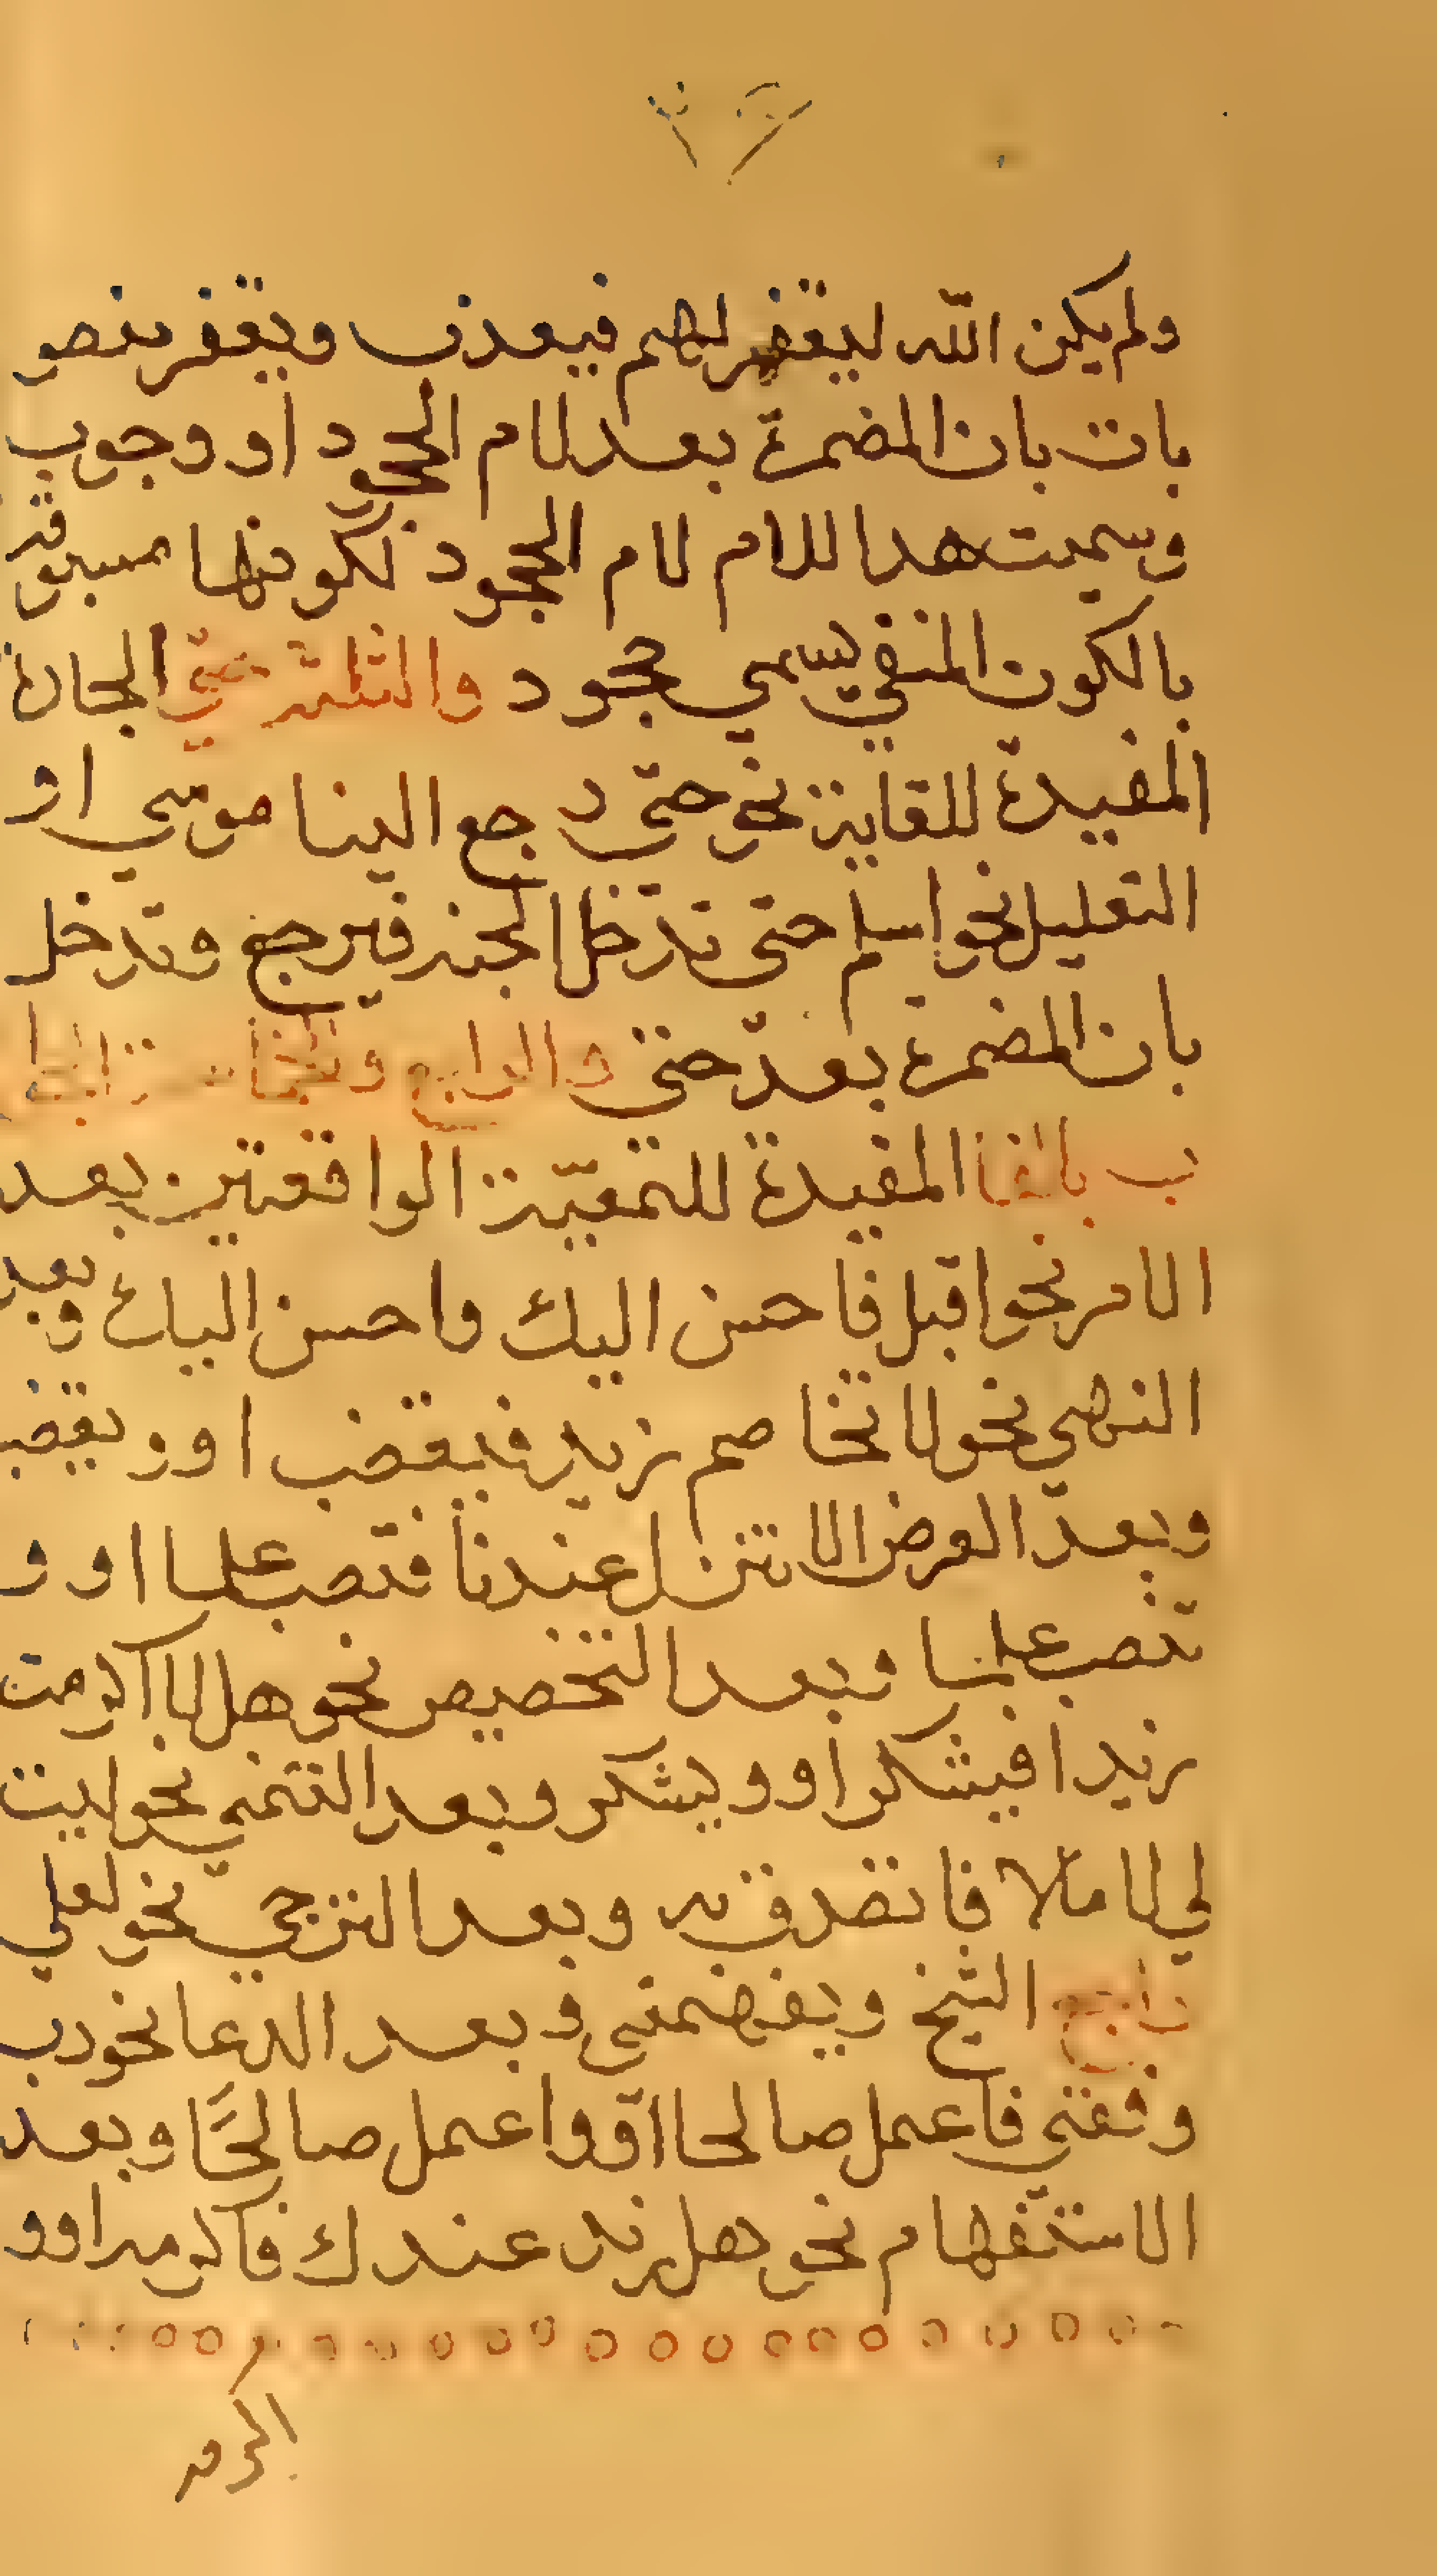 ولم يكن الله ليغفر لهم فيعذب ويغفر منصو
بات بان المضمرة بعد لام الجحود او وجوب
وسميت هدا للام لام الجحود لكونها مسبوقة
بالكون المنفي يسمي جحود والثلثة حتي الجارة
المفيدة للغاية نحو حتي يرجع الينا موسي او
التعليل نحو اسلم حتى تدخل الجنة فيرجع وتدخل
بان المضمرة بعد حتى والرابع والخامسة الجوا
ب بالفا المفيدة للمعية الواقعتين بعد
الامر نحو اقبل فاحسن اليك واحسن اليك وبعد
النهي نحو لا تخاصم زيد فيغضب او ويغضب
وبعد العرض الا تنزل عندنا فتصب علما او و
تصب علما وبعد التخصيص نحو هلا اكرمت
زيدا فيشكر او ويشكر وبعد التمني نحو ليت
لي لا مالا فا تصدق به وبعد الترجي نحو لعلي
راجع الشيخ ويفهمني وبعد الدعا نحو رب
وفقني فاعمل صالحا او واعمل صالحا وبعد
الاستفهام نحو هل زيد عندك فاكرمه او و
اكرمه